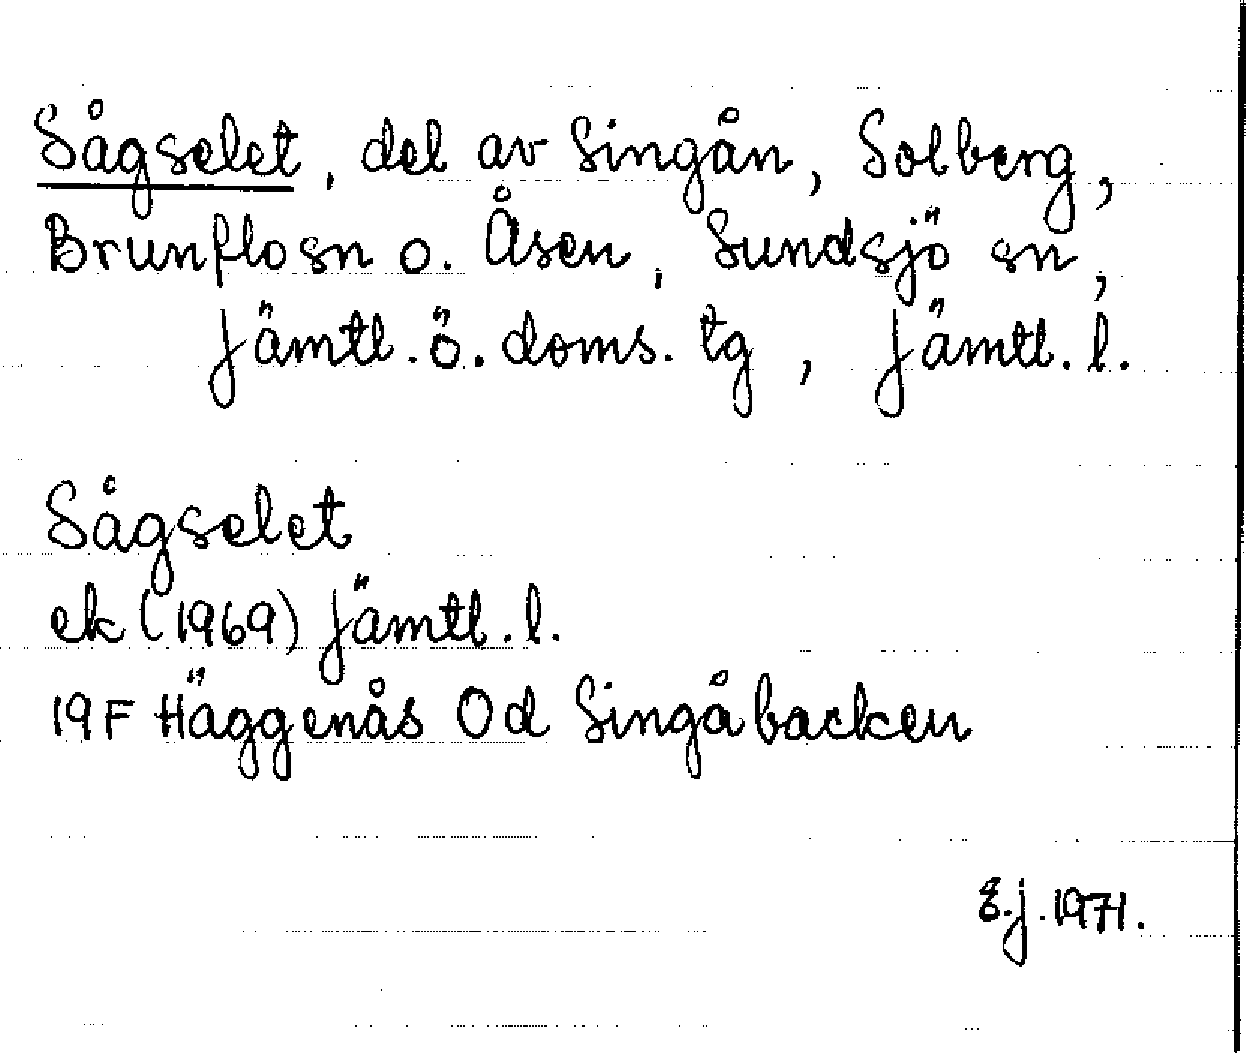 Sågselet, del av Singån, Solberg,
Brunflo sn o. Åsen, Sundsjö sn,
Jämtl. ö. doms. tg, Jämtl. l.
Sågselet
ek (1969) Jämtl. l.
19F Häggenås Od Singåbacken
E.J. 1971.